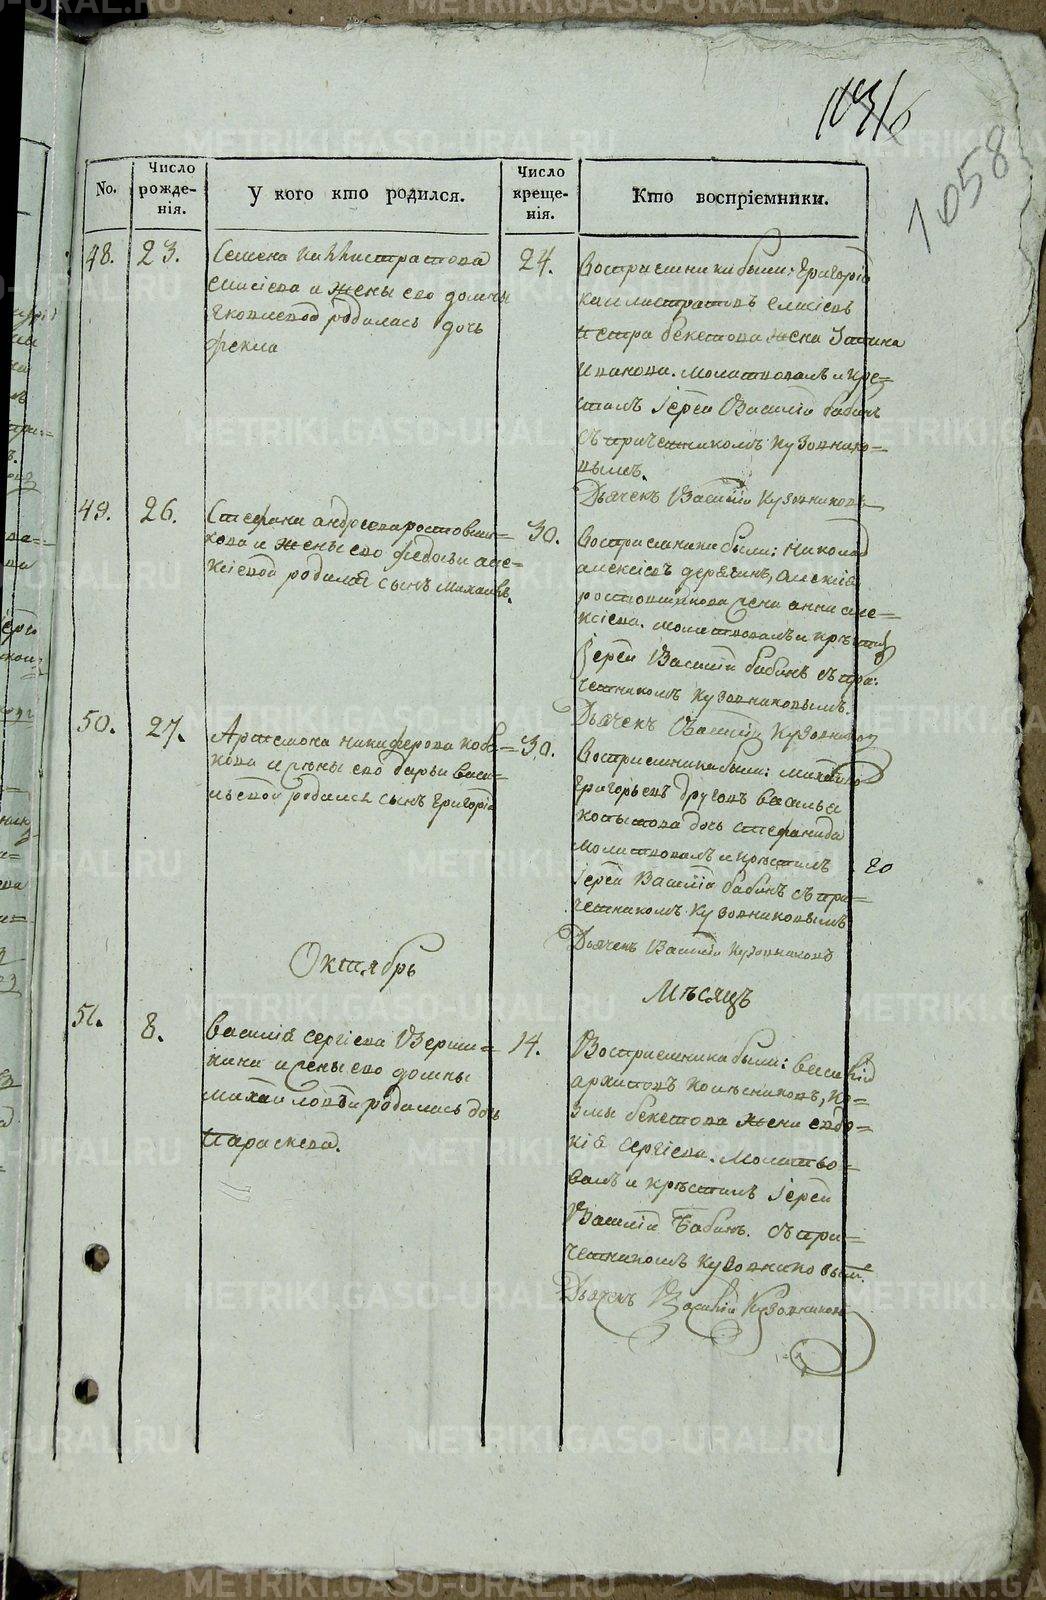 1058
No.
Число рожде-нія.
У кого кто родился.
Число креще-нія.
Кто воспріемники.
48. 23.
Семена Каллистратова
Елисѣева и жены его домны
Яковлевой родилась дочь
фекла
24.
Восприемники были: Григорій
Каллистратовъ Елисѣевъ
Петра бекетова жена
Иванова. Молитвовалъ и кре=
стилъ Іерей Василій бабинъ
съ причетникомъ Кузовнико=
вымъ.
Дьячекъ Василій Кузовниковъ
49. 26.
Стефана андреева ростовщи=
кова и жены его федосьи але=
ксіевой родился сынъ михаилъ.
30.
Восприемники были: Николай
алексіевъ дерягинъ, алексія
ростовщикова жена анна але=
ксіева. молитвовалъ и крѣстилъ
Іерей Василій бабинъ съ при:
четникомъ Кузовниковымъ.
Дьячекъ Василій Кузовниковъ
50. 27.
Артемона никифорова
кова и жены его дарьи васи=
льевой родился сынъ Григорій
30.
Восприемники были: михайло
Григорьевъ другов василья
копытова дочь стефанида
молитвовалъ и крѣстилъ
Іерей Василій бабинъ съ при=
четникомъ Кузовниковымъ
Дьячекъ Василій Кузовниковъ
20
Октябрь
Мѣсяцъ
51. 8.
василія сергіева Верши=
нина и жены его домны
михайловы родилась дочь
Параскева.
14.
Восприемники были: василій
архиповъ Колѣсниковъ, Ко=
змы бекетова жена евдо=
кія сергіева. Молитво=
валъ и крѣстилъ Іерей
Василій Бабинъ. съ при=
четникомъ Кузовниковым.
Дьячекъ Василій Кузовниковъ
METRIKI.GASO-URAL.RU